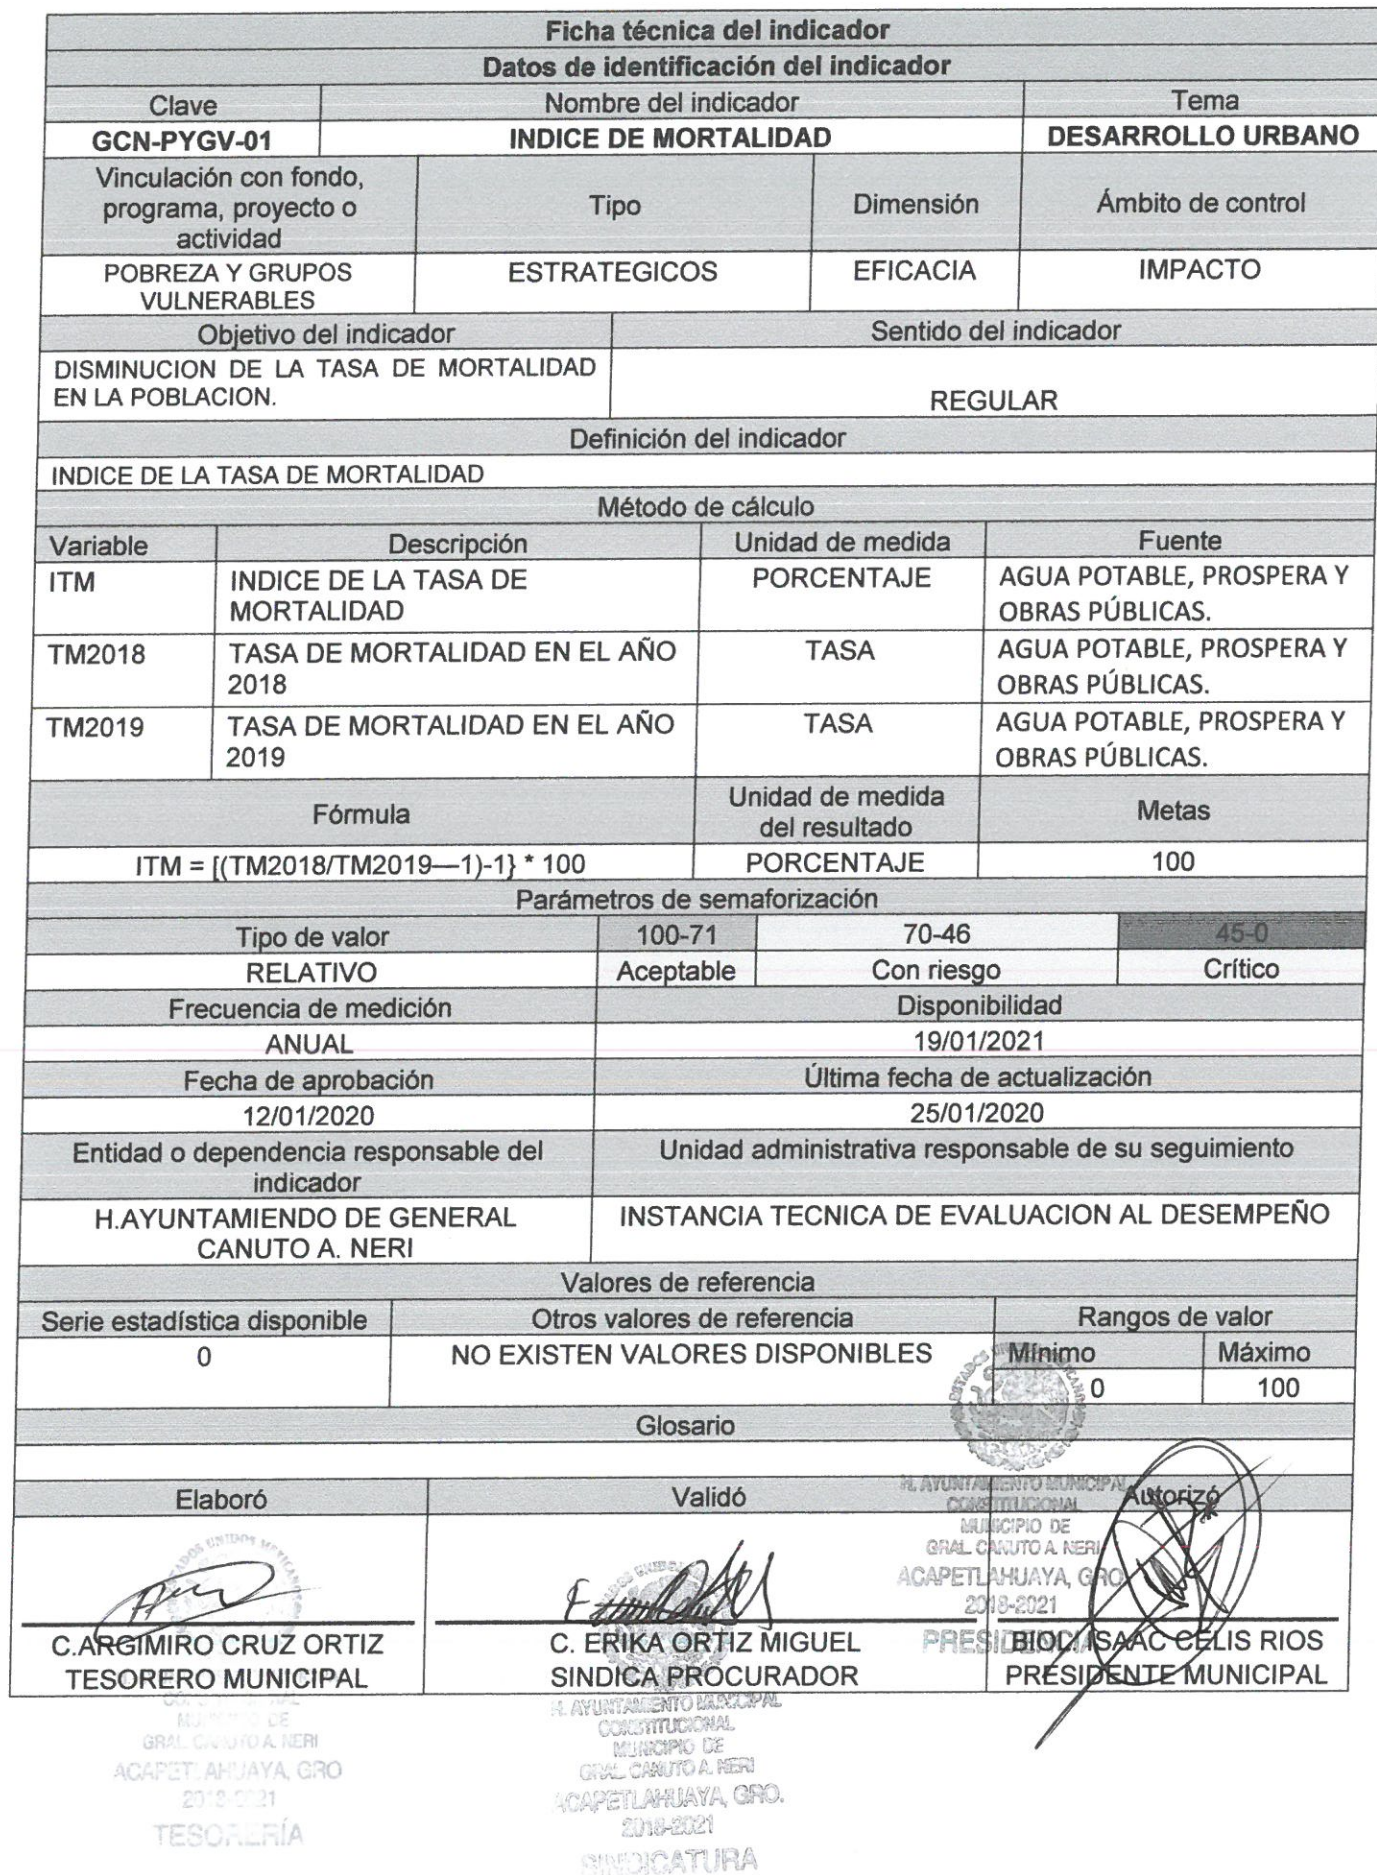 Ficha técnica del indicador
Datos de identificación del indicador
Clave Nombre del indicador Tema
GCN-PYGV-01 INDICE DE MORTALIDAD DESARROLLO URBANO
Vinculación con fondo,
programa, proyecto o
actividad
Tipo Dimensión Ámbito de control
POBREZA Y GRUPOS
VULNERABLES
ESTRATEGICOS EFICACIA IMPACTO
Objetivo del indicador Sentido del indicador
DISMINUCION DE LA TASA DE MORTALIDAD
EN LA POBLACION.
REGULAR
Definición del indicador
INDICE DE LA TASA DE MORTALIDAD
Método de cálculo
Variable Descripción Unidad de medida Fuente
ITM INDICE DE LA TASA DE PORCENTAJE AGUA POTABLE, PROSPERA Y
MORTALIDAD OBRAS PÚBLICAS.
TM2018 TASA DE MORTALIDAD EN EL AÑO TASA AGUA POTABLE, PROSPERA Y
2018 OBRAS PÚBLICAS.
TM2019 TASA DE MORTALIDAD EN EL AÑO TASA AGUA POTABLE, PROSPERA Y
2019 OBRAS PÚBLICAS.
Fórmula Unidad de medida
del resultado Metas
ITM = [(TM2018/TM2019—1)-1} * 100 PORCENTAJE 100
Parámetros de semaforización
Tipo de valor 100-71 70-46 45-0
RELATIVO Aceptable Con riesgo Crítico
Frecuencia de medición Disponibilidad
ANUAL 19/01/2021
Fecha de aprobación Última fecha de actualización
12/01/2020 25/01/2020
Entidad o dependencia responsable del
indicador
Unidad administrativa responsable de su seguimiento
H.AYUNTAMIENDO DE GENERAL
CANUTO A. NERI
INSTANCIA TECNICA DE EVALUACION AL DESEMPEÑO
Valores de referencia
Serie estadística disponible Otros valores de referencia Rangos de valor
0 NO EXISTEN VALORES DISPONIBLES Mínimo Máximo
0 100
Glosario
Elaboró Validó Autorizó
H. AYUNTAMIENTO MUNICIPAL
CONSTITUCIONAL
MUNICIPIO DE
GRAL. CANUTO A. NERI
ACAPETLAHUAYA, GRO
2018-2021
PRESIDENCIA
C.ARGIMIRO CRUZ ORTIZ
TESORERO MUNICIPAL
C. ERIKA ORTIZ MIGUEL
SINDICA PROCURADOR
ISAAC CELIS RIOS
PRESIDENTE MUNICIPAL
MUNICIPIO DE
GRAL. CANUTO A. NERI
ACAPETLAHUAYA, GRO
2018-2021
TESORERÍA
H. AYUNTAMIENTO MUNICIPAL
CONSTITUCIONAL
MUNICIPIO DE
GRAL. CANUTO A. NERI
ACAPETLAHUAYA, GRO.
2018-2021
SINDICATURA